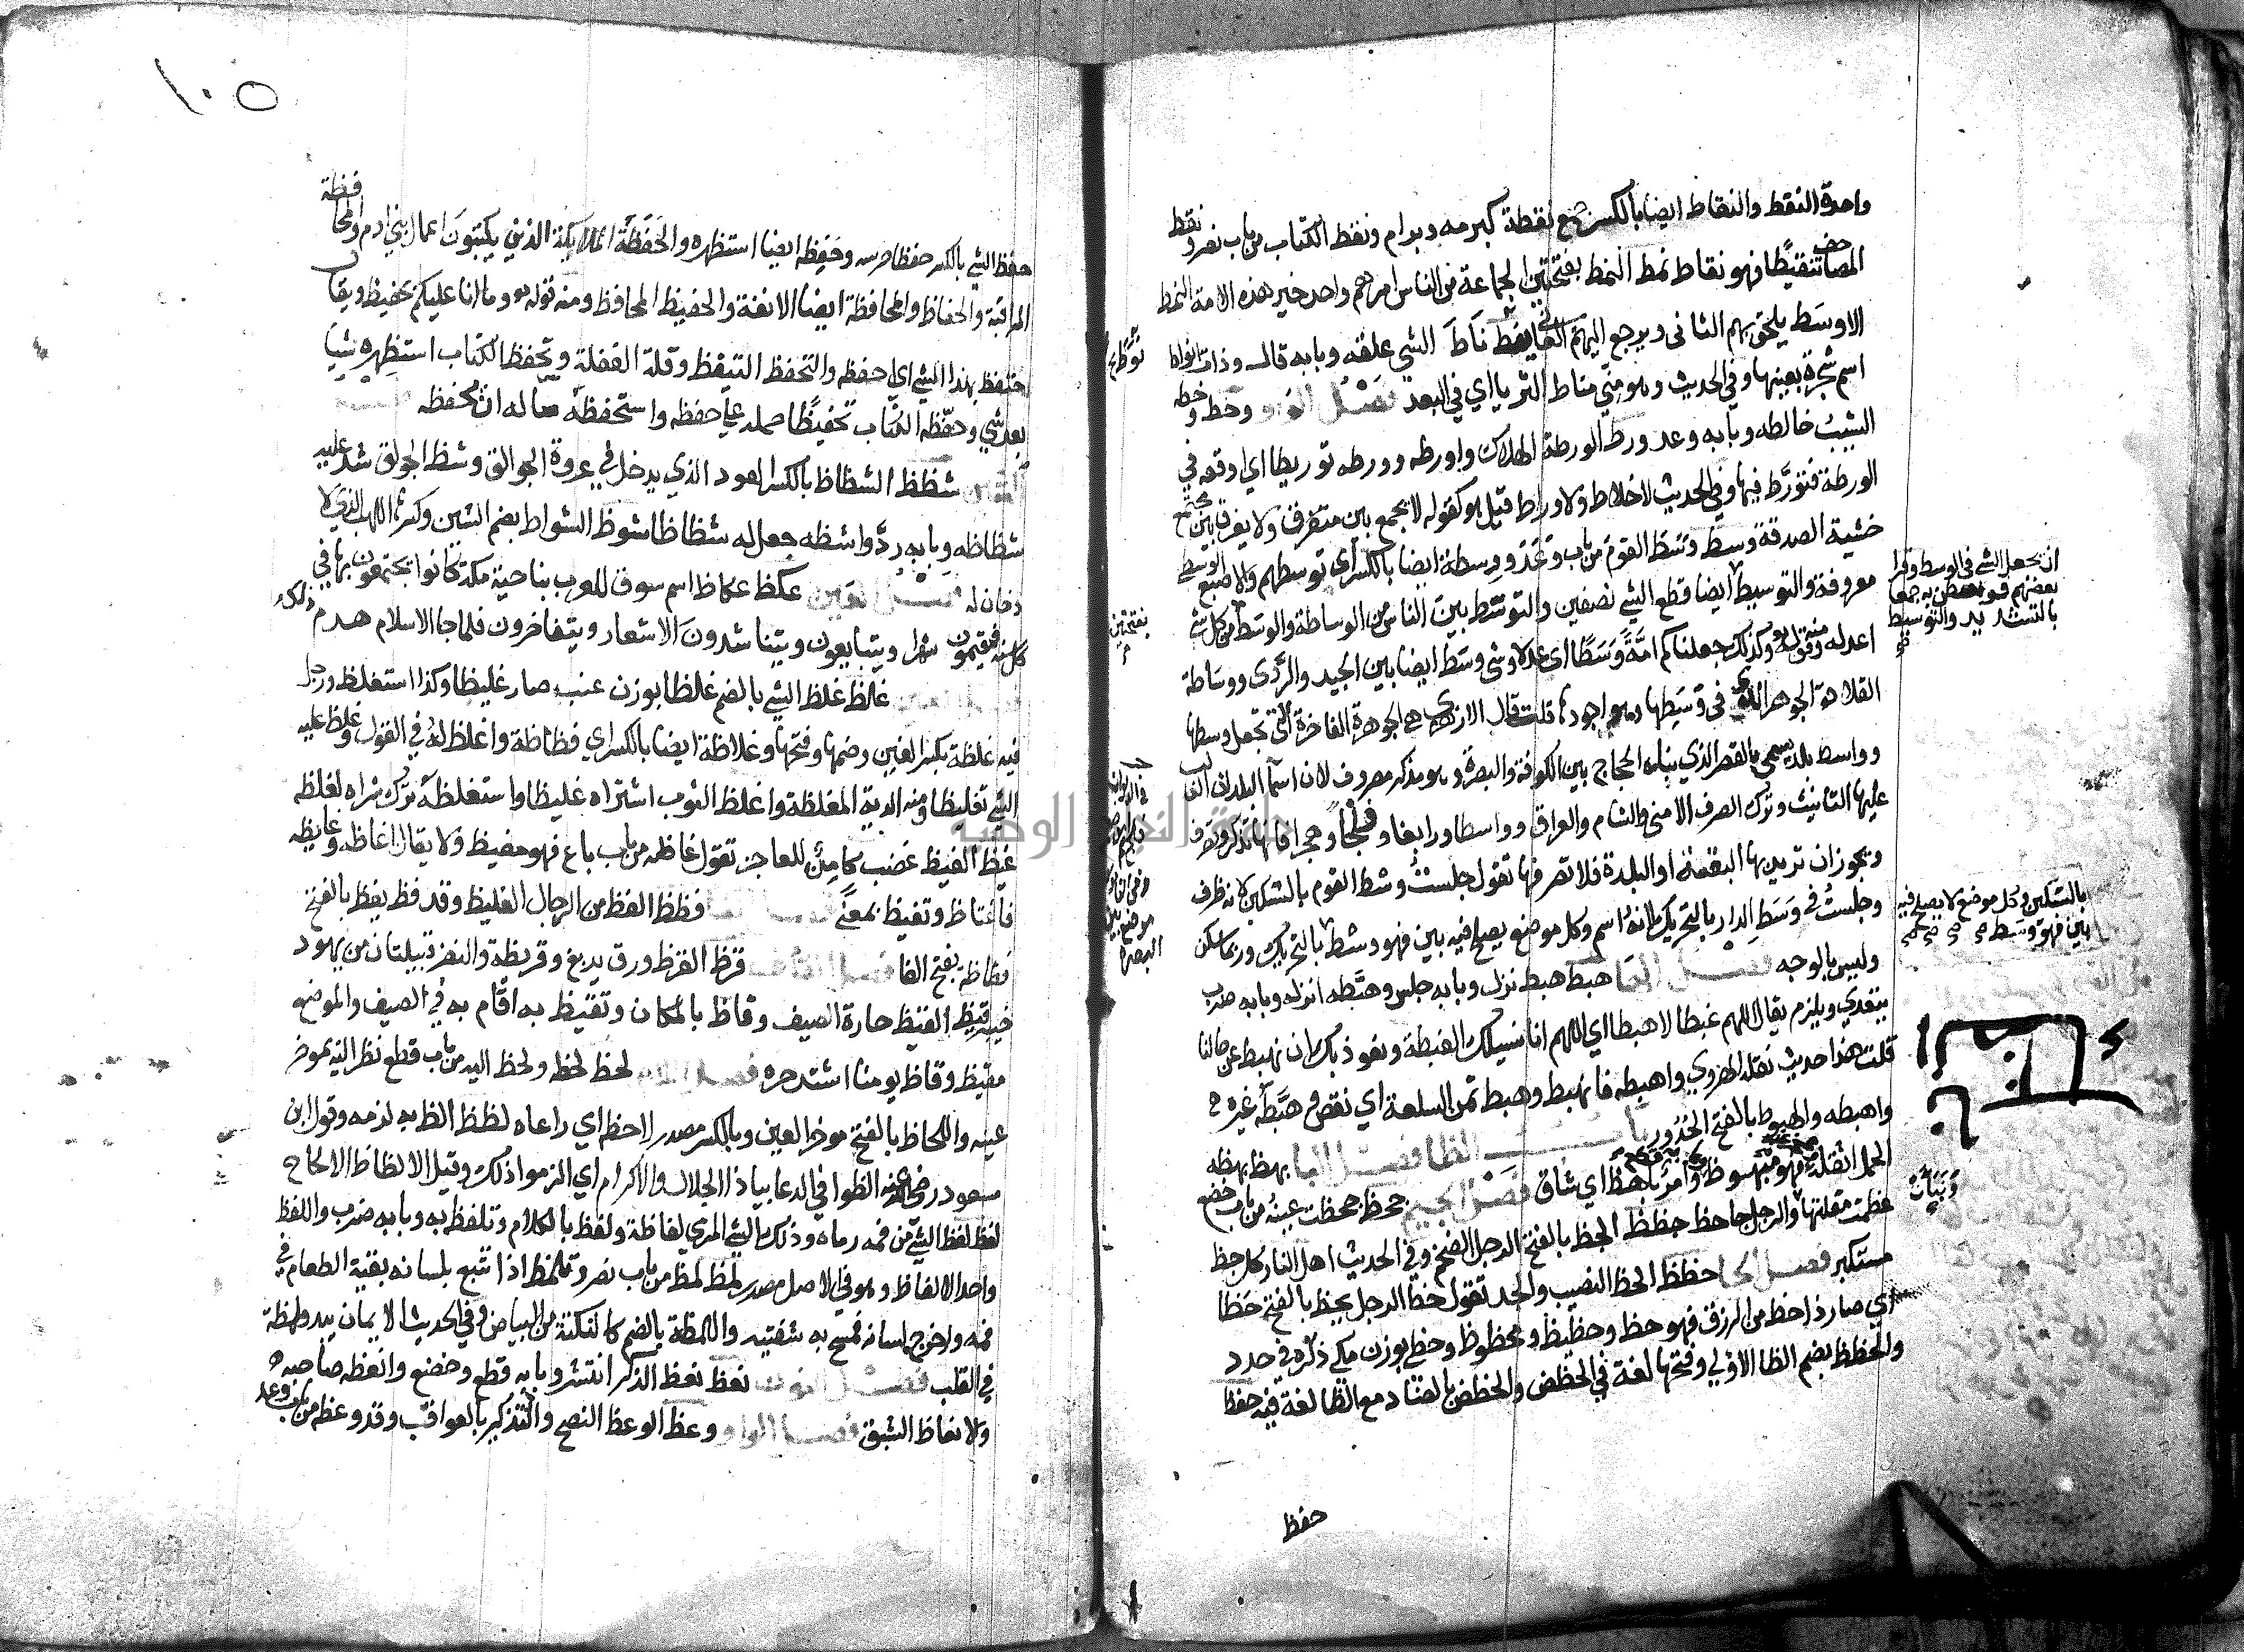 واحدة النقط والنقاط ايضا بالكسر جمع نقطة كبرمه وبرام ونقط الكتاب من باب نصر ونقط
المصاحف تنقيطا فهو نقاط نمط النمط بفتحتين الجماعة من الناس امرهم واحد خير هذه الامة النمط
الاوسط يلحق بهم التانى ويرجع اليهم الغالى نوط ناط الشي علقه وبابه قال وذات انواط
اسم شجرة بعينها وفي الحديث وهو مني مناط الثريا اي في البعد فصل الواو وخط وخطه
الشيب خالطه وبابه وعد ورط الورطة الهلاك واورطه وورطه توريطا اي اوقعه في
الورطة فتورط فيها وفي الحديث لا خلاط ولا وراط قيل هو كقوله لا يجمع بين متفرق ولا يفرق بين مجتمع
خشية الصدقة وسط وسط القوم من باب وعد ووسطة ايضا بالكسر اي توسطهم والاصبع الوسطى
معروفة والتوسيط ايضا قطع الشي نصفين والتوسط بين الناس من الوساطة والوسط من كل شي
اعدله ومنه قوله وكذلك جعلناكم امة وسطا اي عدلا وشي وسط ايضا بين الجيد والردى ووساطة
القلادة الجوهر الذي في وسطها وهو اجودها قلت قال الازهري هي الجوهرة الفاخرة التي تجعل وسطها
وواسط بلد يسمى بالقصر الذي بناه الحجاج بين الكوفة والبصرة وهو مذكر مصروف لان اسما البلدان الغالب
عليها التانيث وترك الصرف الا منى والشام والعراق وواسطا ودابغا وفلجا وهجرا فانها تذكر وتصرف
ويجوز ان تريد بها البقعة او البلدة فلا تصرفها تقول جلست وسط القوم بالتسكين لانه ظرف
وجلست في وسط الدار بالتحريك لانه اسم وكل موضع يصلح فيه بين فهو وسط بالتحريك وربما سكن
وليس بالوجه فصل الها هبط هبط نزل وبابه جلس وهبطه انزله وبابه ضرب
يتعدي ويلزم يقال اللهم غبطا لا هبطا اي اللهم انا نسيلك الغبطة ونعوذ بك ان نهبط عن حالنا
قلت هذا حديث نقله الهروي واهبطه فانهبط وهبط ثمن السلعة اي نقص وهبطه غيره
واهبطه والهبوط بالفتح الحدور باب الظا فصل البا بهظ بهظه
الحمل اثقله فهو مبهوظ وامر باهظ اي شاق فصل الجيم جحظ جحظت عينه من باب خضع
عظمت مقلتها والرجل جاحظ جظظ الجظ بالفتح الرجل الضخم وفي الحديث اهل النار كل جظ
مستكبر فصل الحا حظظ الحظ النصيب والجد تقول حظ الرجل يحظ بالفتح حظا
اي صار ذا حظ من الرزق فهو حظ وحظيظ ومحظوظ وحظي بوزن مكي ذكره في جدد
والحظظ بضم الظا الاولي وفتحها لغة في الحظض والحظض بالضاد مع الظا لغة فيه حفظ
حفظ
ان يجعل الشي في الوسط وقرا
بعضهم فوسطن به جمعا
بالتشديد والتوسيط
بالتسكين وكل موضع لا يصلح فيه
بين فهو وسط
بفتحتين
١٠٥
حفظ الشي بالكسر حفظا حرسه وحفظه ايضا استظهره والحفظة الملايكة الذين يكتبون اعمال بني ادم والمحافظة
المراقبة والحفاظ والمحافظة ايضا الانفة والحفيظ المحافظ ومنه قوله وما انا عليكم بحفيظ ويقال
احتفظ بهذا الشي اي احفظه والتحفظ التيقظ وقلة الغفلة وتحفظ الكتاب استظهره شيا
بعد شي وحفظه الكتاب تحفيظا حمله علي حفظه واستحفظه ساله ان يحفظه فصل
الشين شظظ الشظاظ بالكسر العود الذي يدخل في عروة الجوالق وشظ الجولق شد عليه
شظاظه وبابه رد واشظه جعل له شظاظا شوظ الشواظ بضم الشين وكسرها اللهب الذي لا
دخان له فصل العين عكظ عكاظ اسم سوق للعرب بناحية مكة كانوا يجتمعون بها في
كل سنة فيقيمون شهرا ويتبايعون ويتناشدون الاشعار ويتفاخرون فلما جا الاسلام هدم ذلك
فصل الغين غلظ غلظ الشي بالضم غلظا بوزن عنب صار غليظا وكذا استغلظ ورجل
فيه غلظة بكسر الغين وضمها وفتحها وغلاظة ايضا بالكسر اي فظاظة واغلظ له في القول وغلظ عليه
الشي تغليظا ومنه الدية المغلظة واغلظ الثوب اشتراه غليظا واستغلظه ترك شراه لغلظه
غيظ الغيظ غضب كامن للعاجز تقول غاظه من باب باع فهو مغيظ ولا يقال اغاظه وغايظه
فاغتاظ وتغيظ بمعني فصل الفا فظظ الفظ من الرجال الغليظ وقد فظ يفظ بالفتح
فظاظة بفتح الفا فصل القاف قرظ القرظ ورق يدبغ وقريظة والنضر قبيلتان من يهود
خيبر قيظ القيظ حارة الصيف وقاظ بالمكان وتقيظ به اقام به في الصيف والموضع
مقيظ وقاظ يومنا اشتد حره فصل اللام لحظ لحظه ولحظ اليه من باب قطع نظر اليه بموخر
عينه واللحاظ بالفتح موخر العين وبالكسر مصدر لاحظه اي راعاه لظظ الظ به لزمه وقول ابن
مسعود رضي الله عنه الظوا في الدعا بياذا الجلال والاكرام اي الزموا ذلك وقيل الالظاظ الالحاح
لفظ لفظ الشي من فمه رماه وذلك الشي المرمي لفاظة ولفظ بالكلام وتلفظ به وبابه ضرب واللفظ
واحد الالفاظ وهو في الاصل مصدر لمظ لمظ من باب نصر وتلمظ اذا تتبع بلسانه بقية الطعام في
فمه واخرج لسانه فمسح به شفتيه واللمظة بالضم كالنكتة من البياض وفي الحديث الايمان يبدو لمظة
في القلب فصل النون نعظ نعظ الذكر انتشر وبابه قطع وخضع وانعظه صاحبه
والانعاظ الشبق فصل الواو وعظ الوعظ النصح والتذكير بالعواقب وقد وعظه من باب وعد